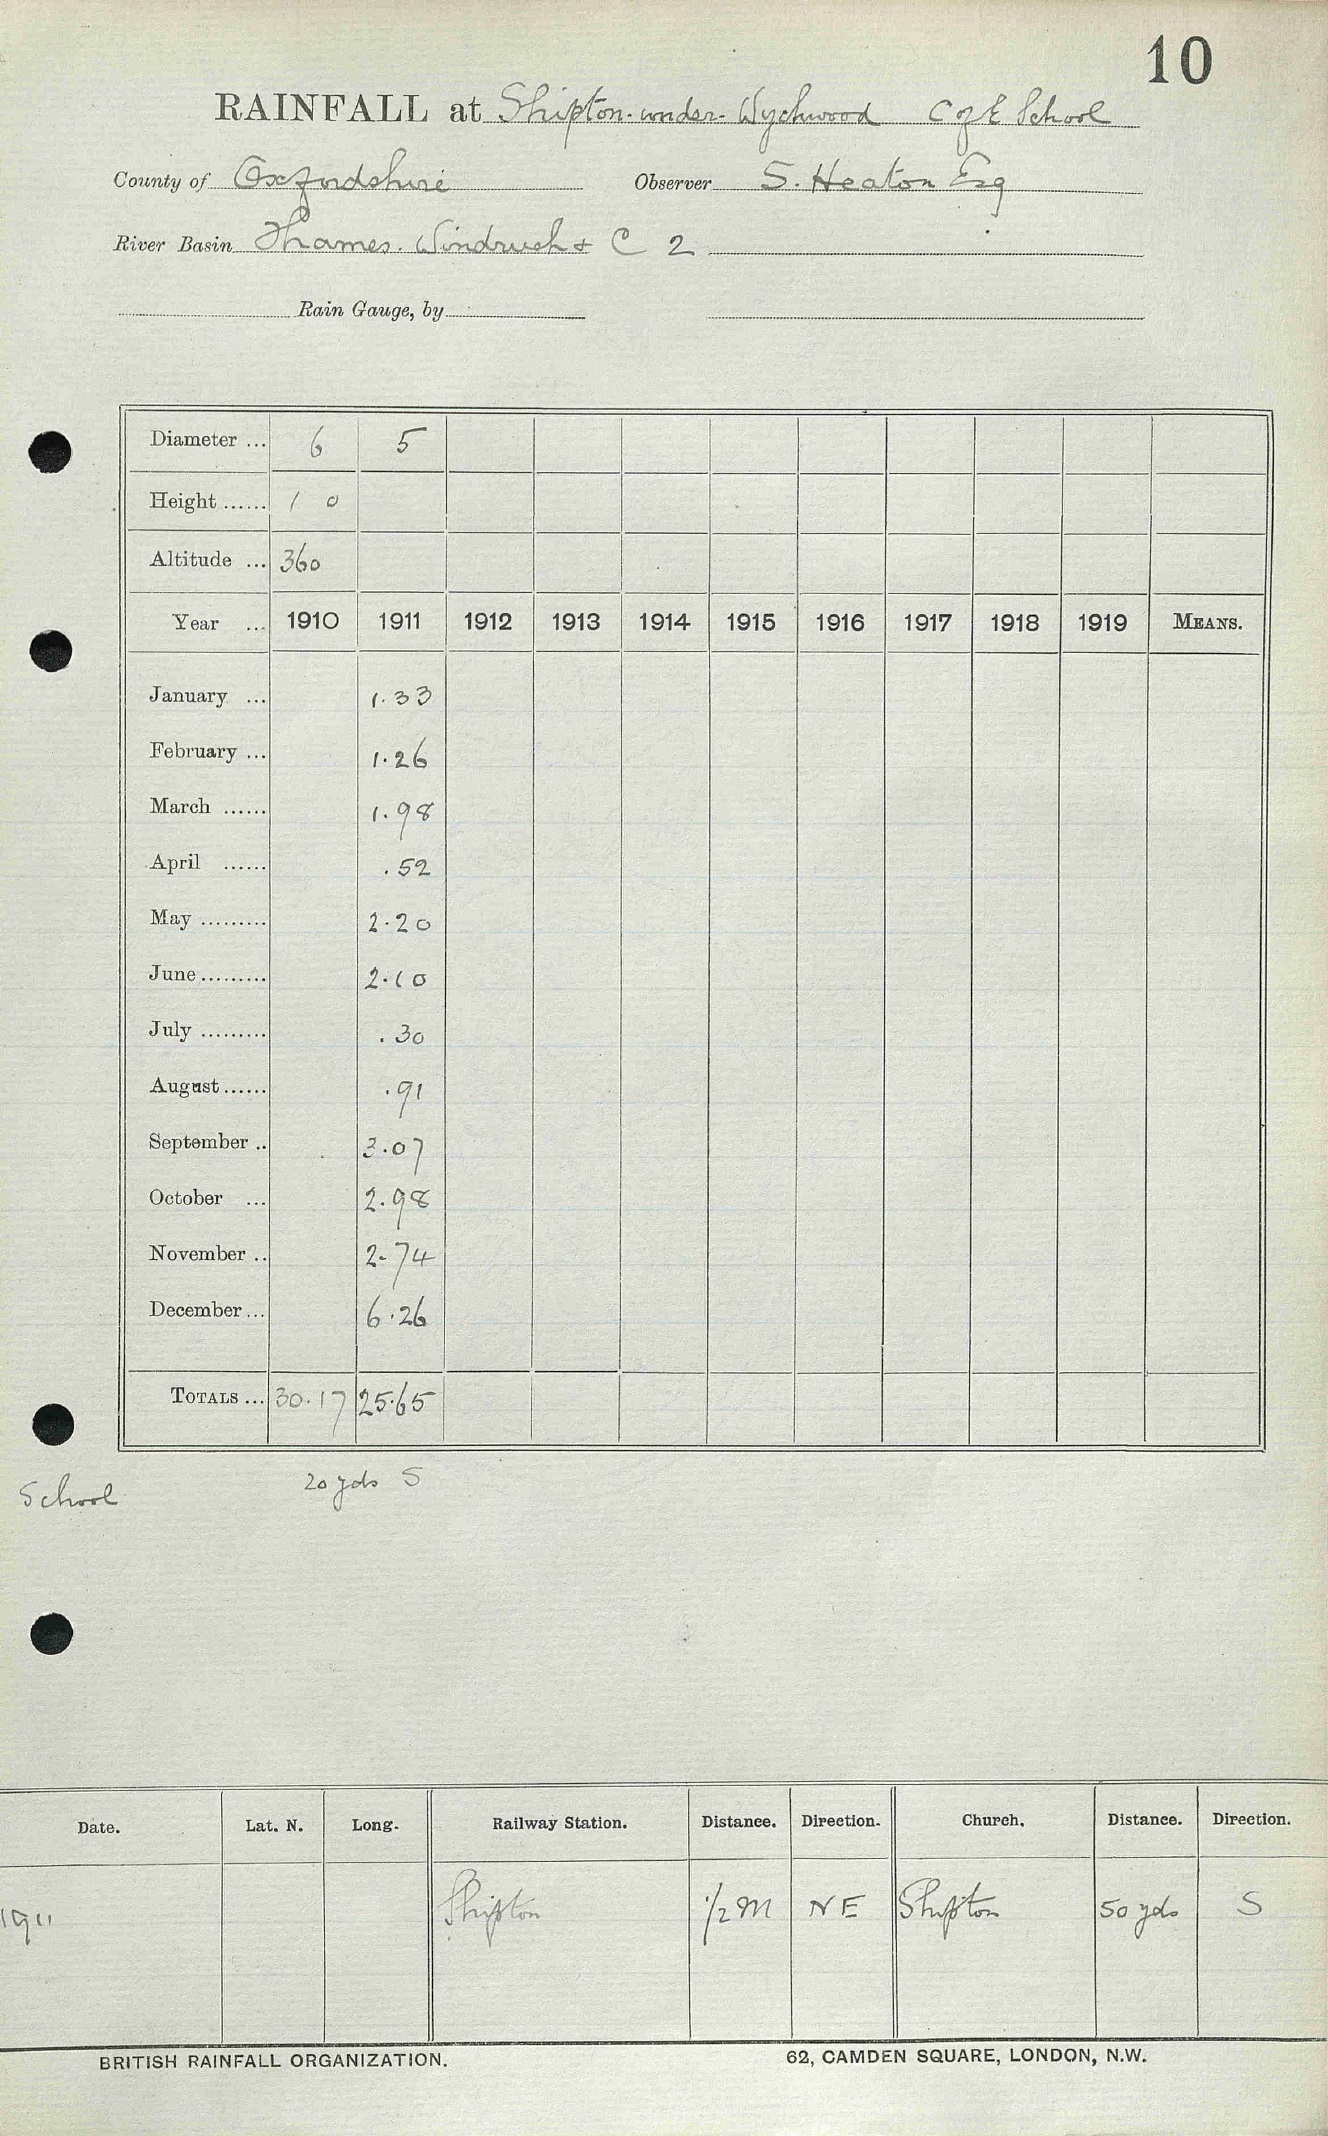 10
RAINFALL at Shipton-under-Wychwood C of E School
County of Oxfordshire Observer S. Heaton Esq
River Basin Thames. Windrush & C 2
Rain Gauge, by
Diameter ... 6 5
Height ...... 1 0
Altitude ... 360
Year ... 1910 1911 1912 1913 1914 1915 1916 1917 1918 1919 MEANS.
January ... 1.33
February ... 1.26
March ...... 1.98
April ...... .52
May ......... 2.20
June ......... 2.10
July ......... .30
August ...... .91
September .. 3.07
October ... 2.98
November .. 2.74
December ... 6.26
TOTALS ... 30.17 25.65
School 20 yds S
Date. Lat. N. Long. Railway Station. Distance. Direction. Church. Distance. Direction.
1911 Shipton 1/2 M NE Shipton 50 yds S
BRITISH RAINFALL ORGANIZATION. 62, CAMDEN SQUARE, LONDON, N.W.